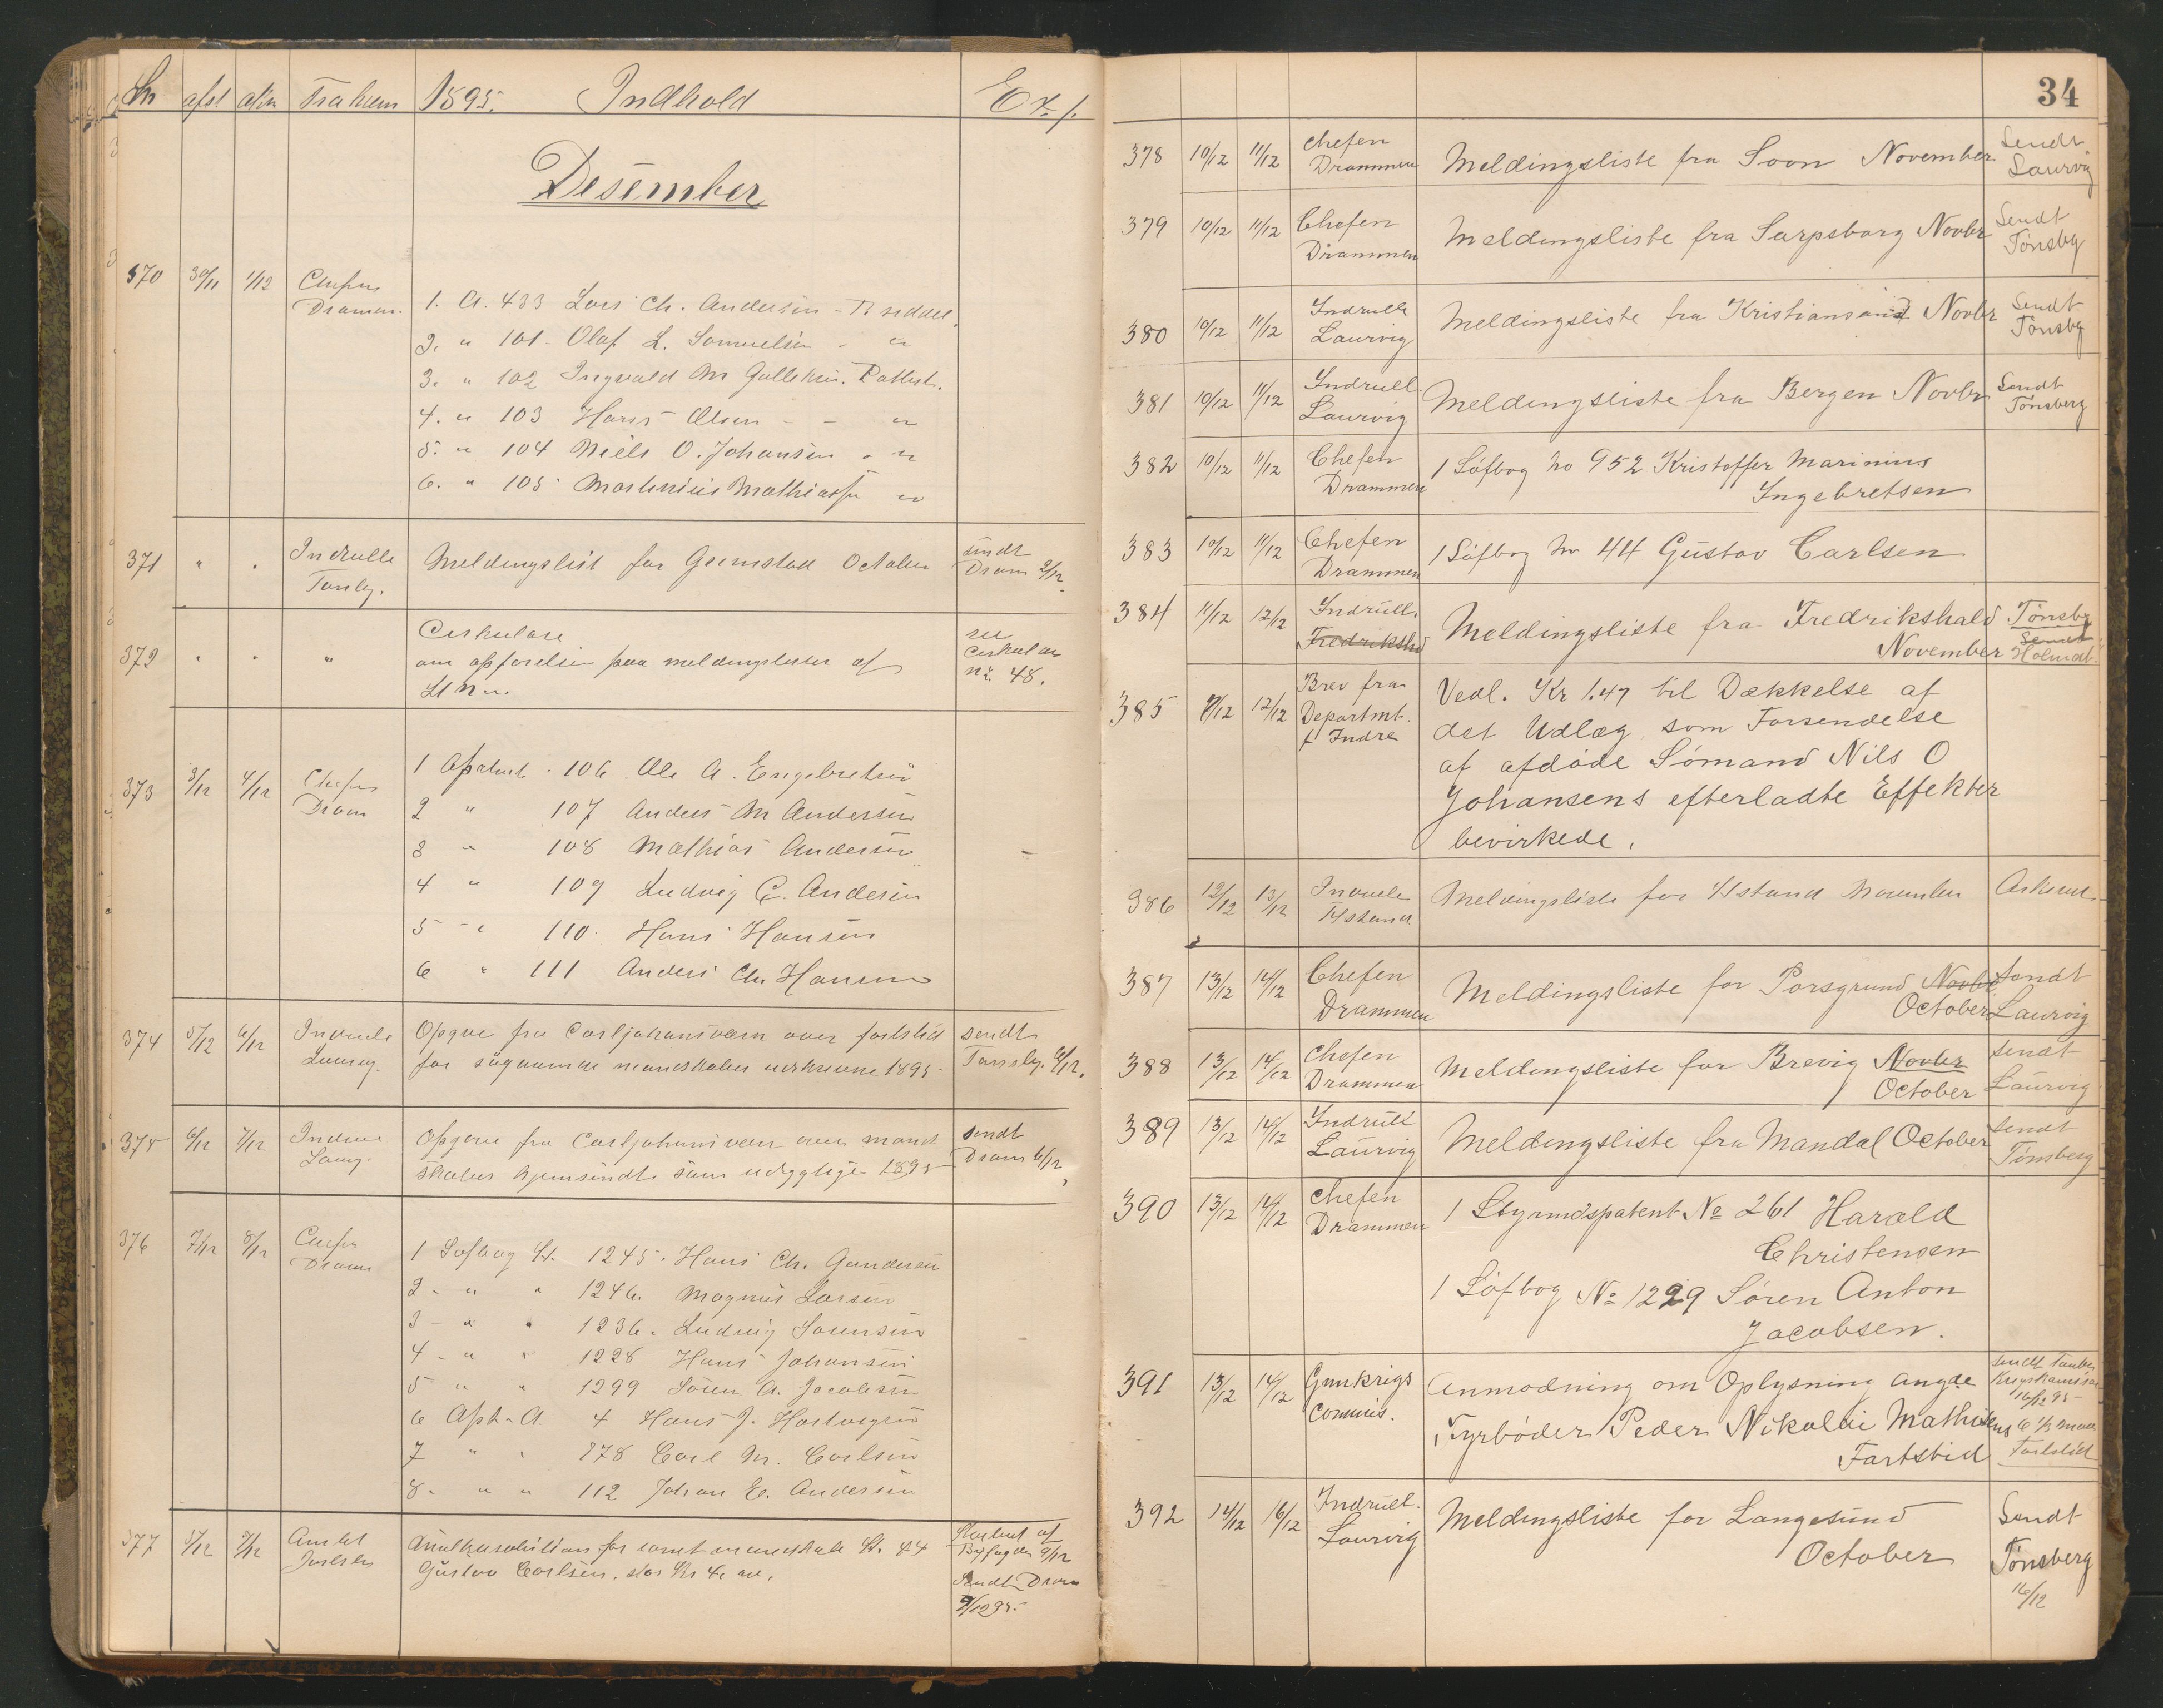 afst ank Fra hvem 1895. Indhold Exp.
Desember
370 30/11 1/12 Chefen Drammen.
1. A. 433 Lars Ch. Andersen
2. " 101 - Olaf L. Samuelsen - "
3. " 102 Ingvald M
4. " 103 Hans Olsen - - "
5. " 104 Niels O. Johansen - "
6. " 105 Martinius Mathiassen "
371 " " Indrulle Tonsbg. Meldingslist for Grimstad October sendt Dram 2/12
372 " " " Cirkulære
om opførelsen paa meldingslister af
see Cirkulær No. 48.
373 3/12 4/12 Chefen Dram
1 106 Ole A. Engebretsen
2 " 107 Anders M Andersen
3 " 108 Mathias Andersen
4 " 109 Ludvig C. Andersen
5 " 110 Hans Hansen
6 " 111 Anders Chr Hansen
374 5/12 6/12 Opgve fra Carljohansværn over fartstid sendt
for mandskaber 1895 Tønsbg. 6/12.
375 6/12 7/12 Opgave fra Carljohansværn over mand sendt
skaber hjemsendt som udygtige 1895 Dram 6/12
376 7/12 8/12 Chefen Dram
1 Søfbog 1245. Hans Ch. Gundersen
2 - " " 1246. Magnus Larsen
3 - " " 1236. Ludvig Sørensen
4 - " " 1228 Hans Johansen
5 " " 1299 Søren A. Jacobsen
6 A. 4 Hans J.
7 " " 178 Carl M. Carlsen
8. " " 112 Johan E. Andersen
377 Amtet
44
Gustav Carlsen.
Sendt Dram
9/12 95.
34
378 10/12 11/12 Chefen Drammen Meldingsliste fra Soon November Sendt Laurvig
379 10/12 11/12 Chefen Drammen Meldingsliste fra Sarpsborg Novbr Sendt Tønsbg
380 10/12 11/12 Indrulle Laurvig Meldingsliste fra Kristiansand Novbr Sendt Tønsbg
381 10/12 11/12 Indrull. Laurvig Meldingsliste fra Bergen Novbr Sendt Tønsberg
382 10/12 11/12 Chefen Drammen 1 Søfbog No 952 Kristoffer Marinius
Ingebretsen
383 10/12 11/12 Chefen Drammen 1 Søfbog No 44 Gustav Carlsen
384 11/12 12/12 Indrull. Fredrikshd Meldingsliste fra Fredrikshald Tønsbg
November Sendt Holmest.
385 7/12 12/12 Brev fra Departmt. f Indre
Vedl. Kr 1.47 til Dækkelse af
det Udlæg som Forsendelse
af afdøde Sømand Nils O
Johansens efterladte Effekter
bevirkede.
386 12/12 13/12 Meldingsliste for November
387 13/12 14/12 Chefen Drammen Meldingsliste for Porsgrund Novbr Sendt
October Laurvig
388 13/12 14/12 Chefen Drammen Meldingsliste for Brevig Novbr Sendt
October Laurvig
389 13/12 14/12 Indrull Laurvig Meldingsliste fra Mandal October Sendt Tønsberg
390 13/12 14/12 Chefen Drammen 1 Styrmdspatent No 261 Harald
Christensen
1 Søfbog No 1229 Søren Anton
Jacobsen.
391 13/12 14/12 Gnnkrigs Commis. Anmodning om Oplysning angde
Fyrbøder Peder Nikolai Mathisens
Fartstid
392 14/12 16/12 Indrull. Laurvig Meldingsliste for Langesund Sendt
October Tønsberg
16/12